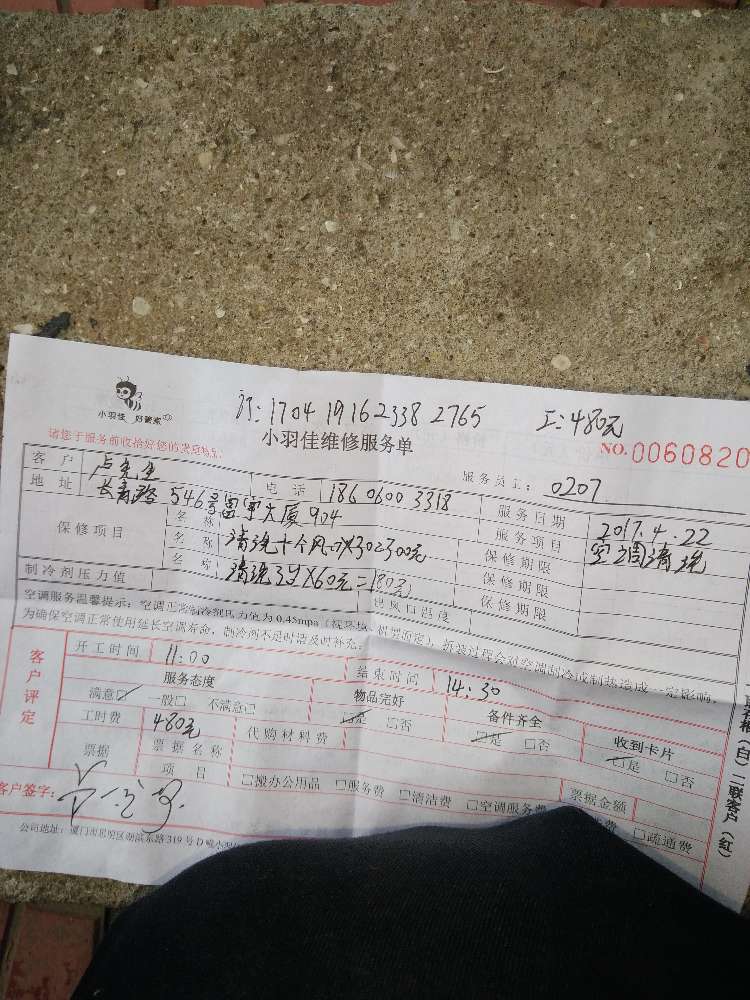 订: 1704 1916 2338 2765 工: 480元
小羽佳 好管家
小羽佳维修服务单
NO. 0060820
请您于服务前收拾好您的贵重物品
服务员工: 0207
客户 卢先生 电话 186 0600 3318 服务日期 2017.4.22
地址 长青路546号富宇大厦904 服务项目 空调清洗
保修项目
名称 保修期限
名称 清洗十个风口X30=300元 保修期限
名称 清洗3台X60元=180元 保修期限
制冷剂压力值 出风口温度
空调服务温馨提示: 空调正常制冷剂压力值为0.45mpa (视环境、机型而定), 拆装过程会对空调制冷或制热造成一定影响,
为确保空调正常使用延长空调寿命, 制冷剂不足时请及时补充。
客户评定
开工时间 11:00 结束时间 14:30
服务态度 物品完好 备件齐全 收到卡片
满意☑ 一般□ 不满意□ ☑是 □否 ☑是 □否 ☑是 □否
工时费 480元 代购材料费
票据 票据名称 票据金额
项目 □搬办公用品 □服务费 □清洁费 □空调服务费 □疏通费
客户签字:
公司地址: 厦门市思明区湖滨东路319号D幢小羽佳
二联客户(红)